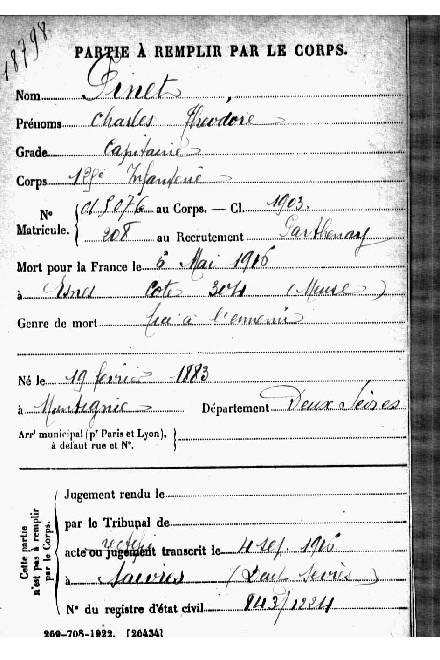 18798
PARTIE À REMPLIR PAR LE CORPS.
Nom Pinet
Prénoms Charles Théodore
Grade Capitaine
Corps 125e Infanterie
No Matricule. 015076 au Corps. — Cl. 1903.
208 au Recrutement Parthenay
Mort pour la France le 6 Mai 1916
à Esnes Cote 304 (Meuse)
Genre de mort tué à l'ennemi
Né le 19 février 1883
à Département Deux Sèvres
Arrt municipal (pr Paris et Lyon), à défaut rue et No.
Cette partie n'est pas à remplir par le Corps.
Jugement rendu le
par le Tribunal de
acte ou jugement transcrit le 4 sept. 1916
à Saivres (Deux Sèvres)
No du registre d'état civil 943/1224
269-708-1922. [26434]